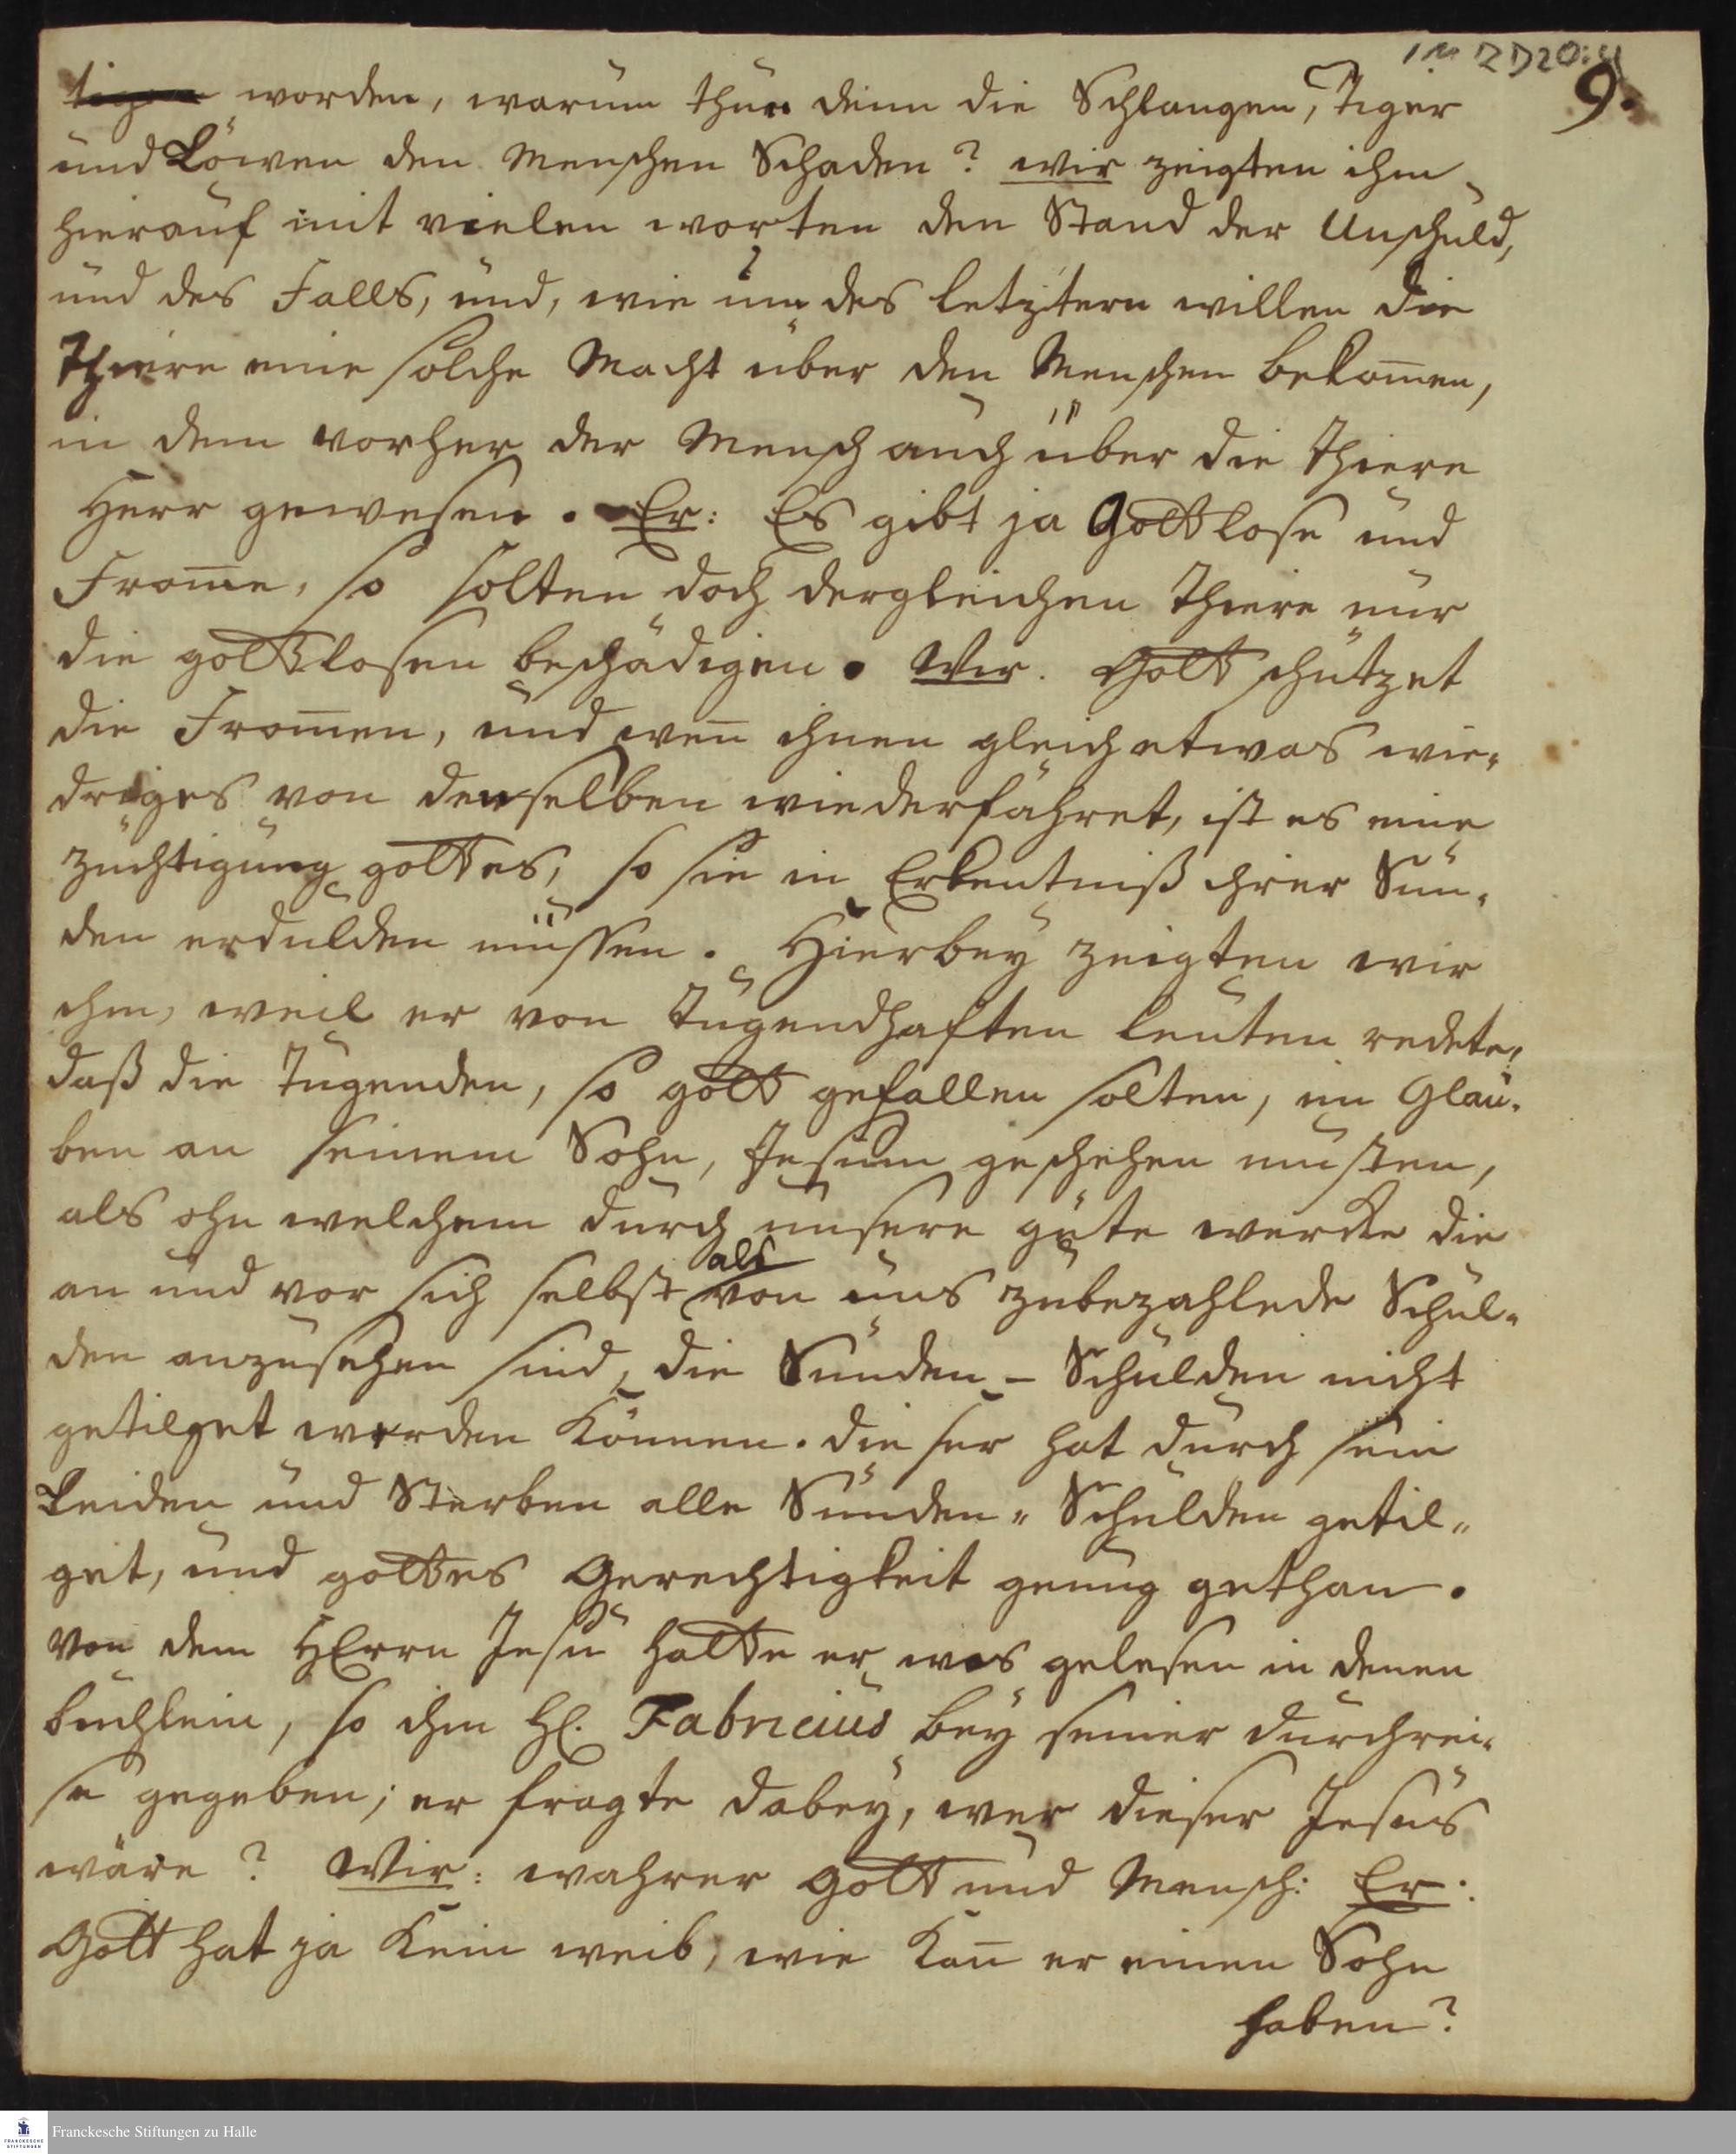 1M 2D20:4
9.
worden, warum thun denn die Schlangen, Tiger
und Löwen den Menschen Schaden? wir zeigten ihm
hierauf mit vielen worten den Stand der Unschuld,
und des Falls, und, wie um des letztern willen die
Thiere eine solche Macht über den Menschen bekom̄en,
in dem vorher der Mensch auch über die Thiere
Herr gewesen. Er: Es gibt ja Gottlose und
From̄e, so solten doch dergleichen Thiere nur
die gottlosen beschädigen. Wir. Gott schützet
die From̄en, und wen̄ ihnen gleich etwas wie-
driges von denselben wiederfähret, ist es eine
züchtigung gottes, so sie in Erkentniß ihrer Sün-
den erdulden müssen. Hierbey zeigten wir
ihm, weil er von Tugendhaften leuten redete,
daß die Tugenden, so gott gefallen solten, im Glau-
ben an seinem Sohn, Jesum geschehen musten,
als ohn welchem durch unsere gute wercke die
an und vor sich selbst als von uns zubezahlede Schul-
den anzusehen sind, die Sünden - Schulden nicht
getilget werden können. dieser hat durch sein
Leiden und Sterben alle Sünden-Schulden getil-
get, und gottes Gerechtigkeit genug gethan.
Von dem HErrn Jesu hatte er was gelesen in denen
büchlein, so ihm H. Fabricius bey seiner durchrei-
se gegeben; er fragte dabey, wer dieser Jesus
wäre? Wir: wahrer Gott und Mensch: Er:
Gott hat ja kein weib, wie kan̄ er einen Sohn
haben?
Franckesche Stiftungen zu Halle